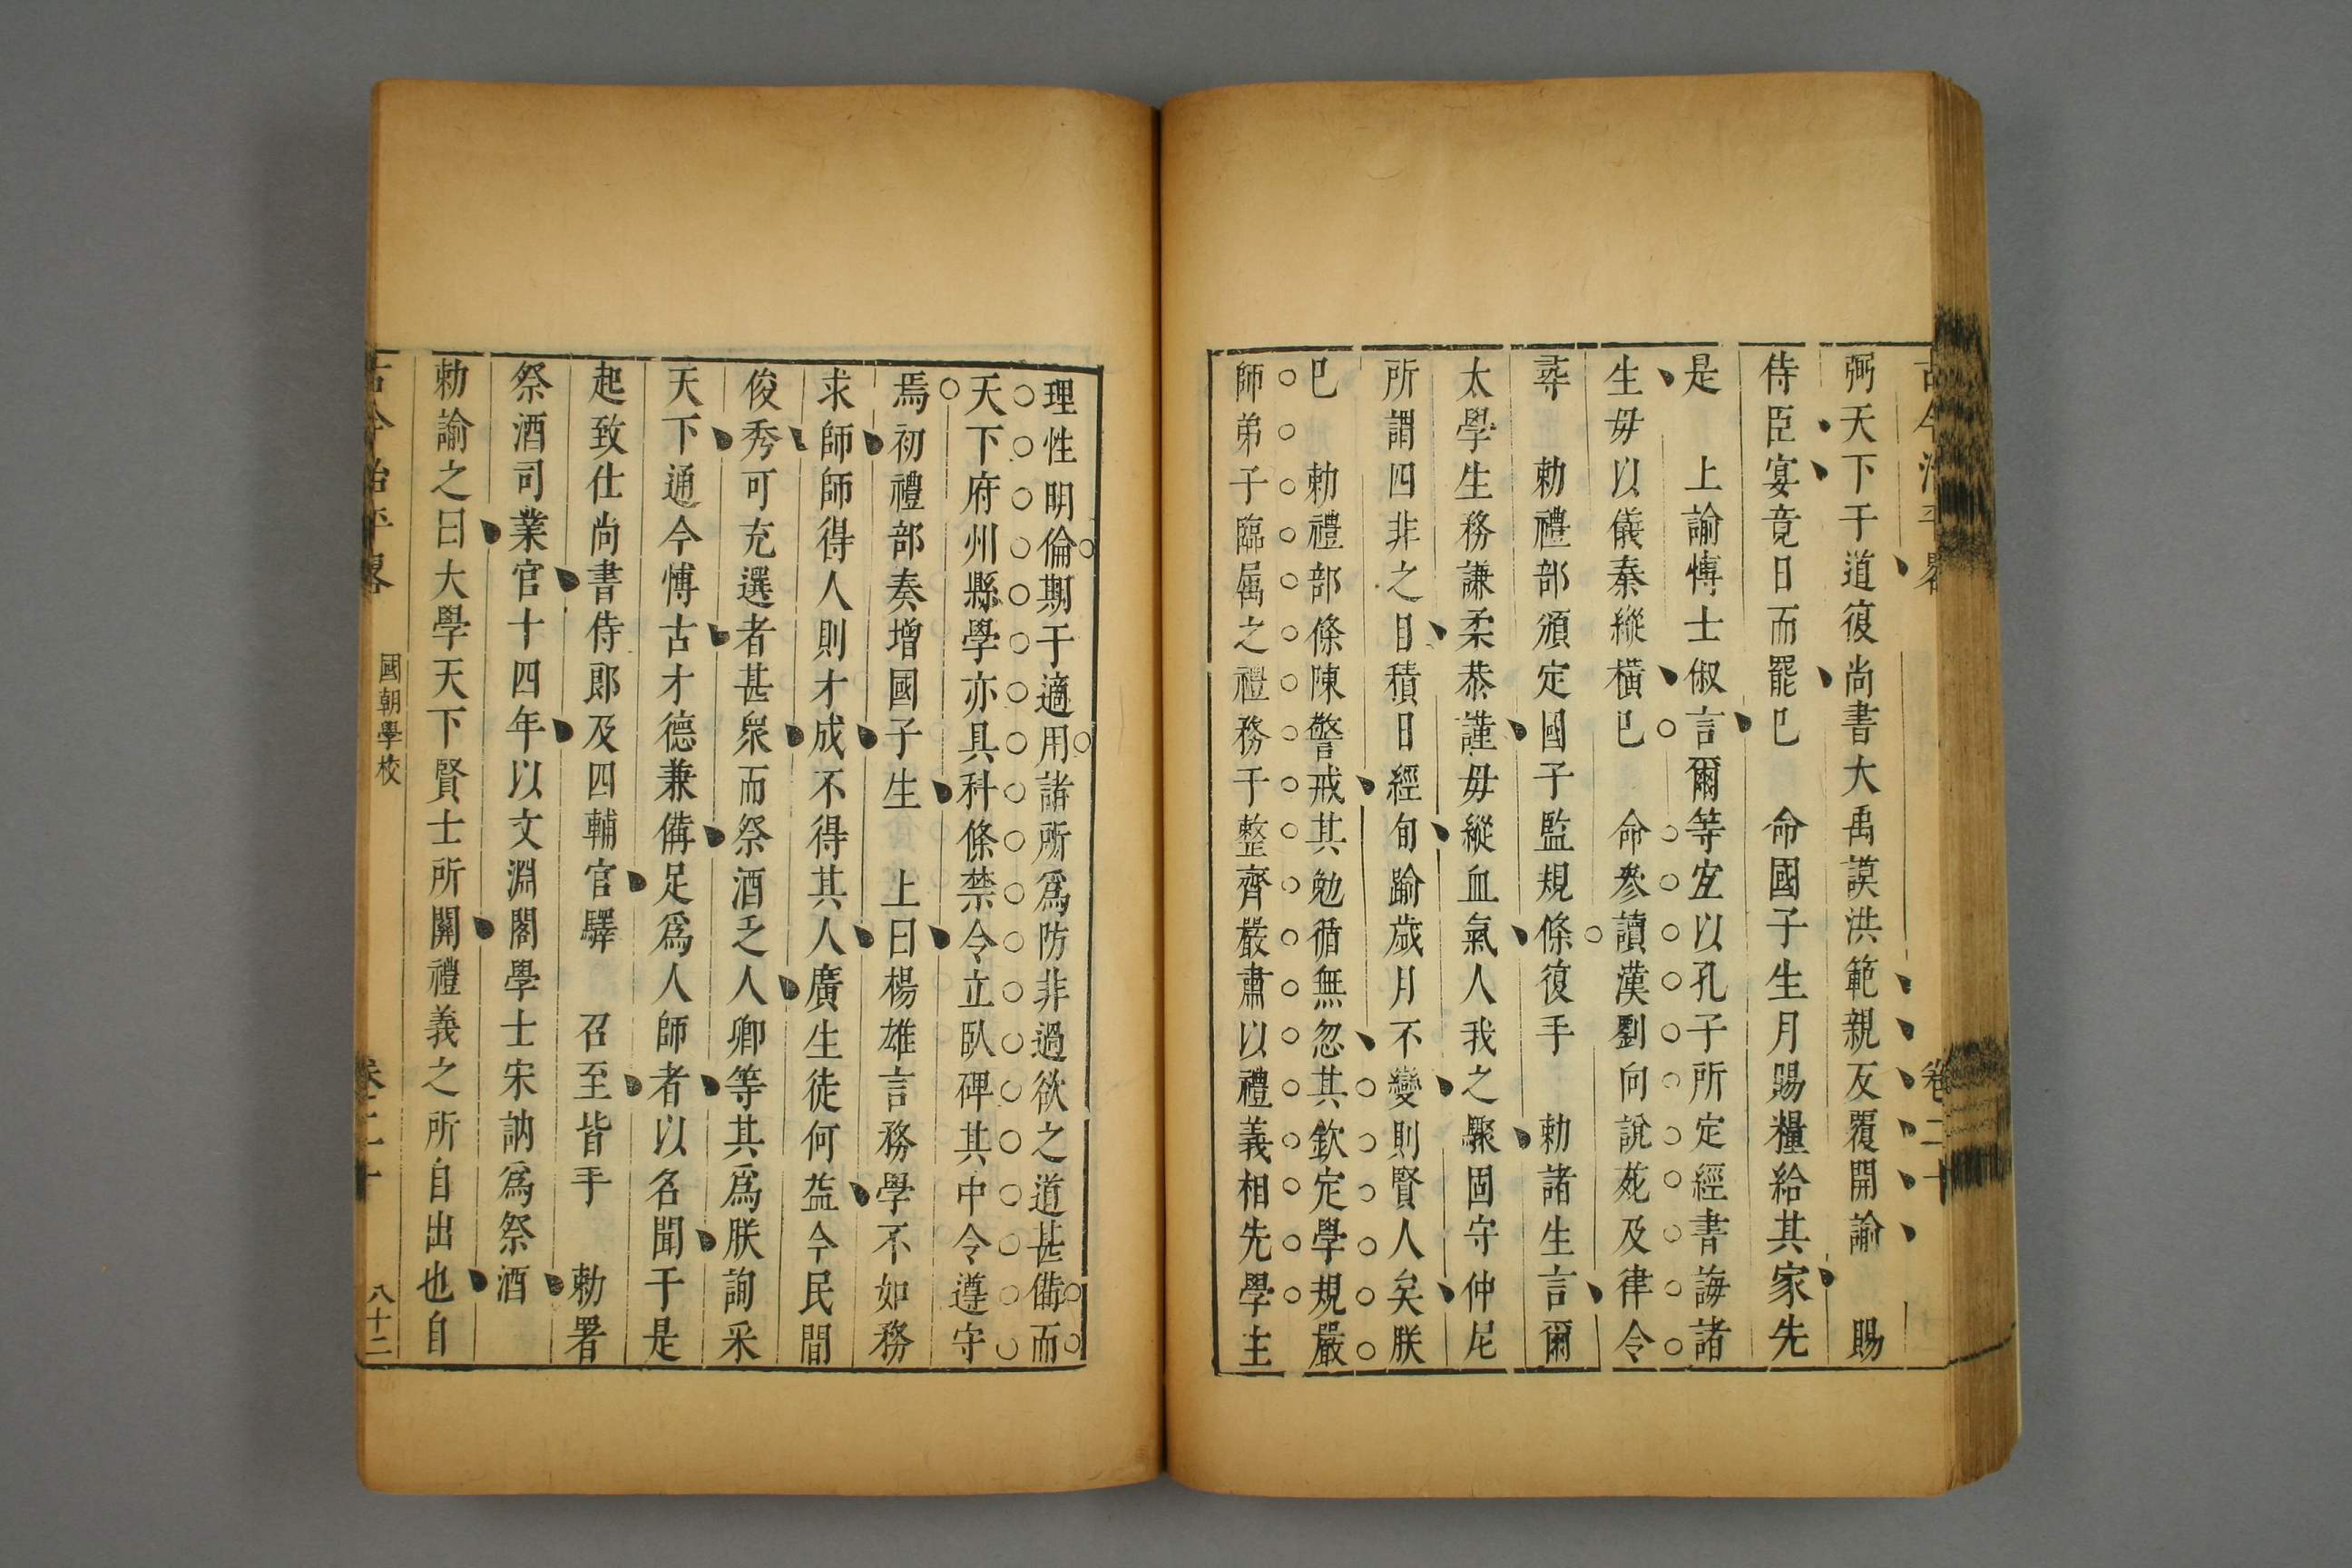 古今治平畧 卷二十
弼天下于道復尚書大禹謨洪範親反覆開諭 賜
侍臣宴竟日而罷已 命國子生月賜糧給其家先
是 上諭博士俶言爾等宜以孔子所定經書誨諸
生毋以儀秦縱橫已 命參讀漢劉向說苑及律令
尋 勅禮部頒定國子監規條復手 勅諸生言爾
太學生務謙柔恭謹毋縱血氣人我之聚固守仲尼
所謂四非之目積日經旬踰歲月不變則賢人矣朕
已 勅禮部條陳警戒其勉循無忽其欽定學規嚴
師弟子臨屬之禮務于整齊嚴肅以禮義相先學主
理性明倫期于適用諸所爲防非過欲之道甚備而
天下府州縣學亦具科條禁令立臥碑其中令遵守
焉初禮部奏增國子生 上曰楊雄言務學不如務
求師師得人則才成不得其人廣生徒何益今民間
俊秀可充選者甚衆而祭酒乏人卿等其爲朕詢采
天下通今博古才德兼備足爲人師者以名聞于是
起致仕尚書侍郎及四輔官驛 召至皆手 勅署
祭酒司業官十四年以文淵閣學士宋訥爲祭酒
勅諭之曰大學天下賢士所關禮義之所自出也自
古今治平畧 國朝學校 卷二十 八十二